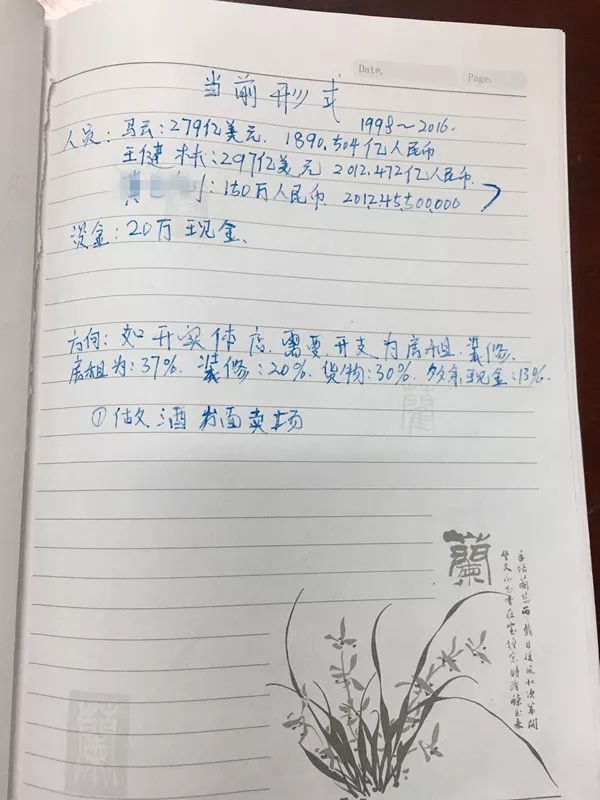 Date.
Page.
当前形式
1998~2016.
人家：马云：279亿美元. 1890.504亿人民币
王健林：297亿美元 2012.472亿人民币.
：150万人民币. 2012.45500.000
资金：20万现金、
方向：如开实体店，需要开支为房租.装修.
房租为：37%. 装修：20%. 货物：30%. 多余现金：13%.
①做酒方面卖场
蘭
蘭